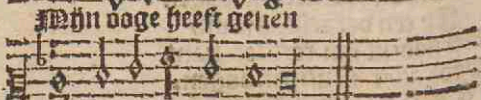 Mijn ooge heeft gesien